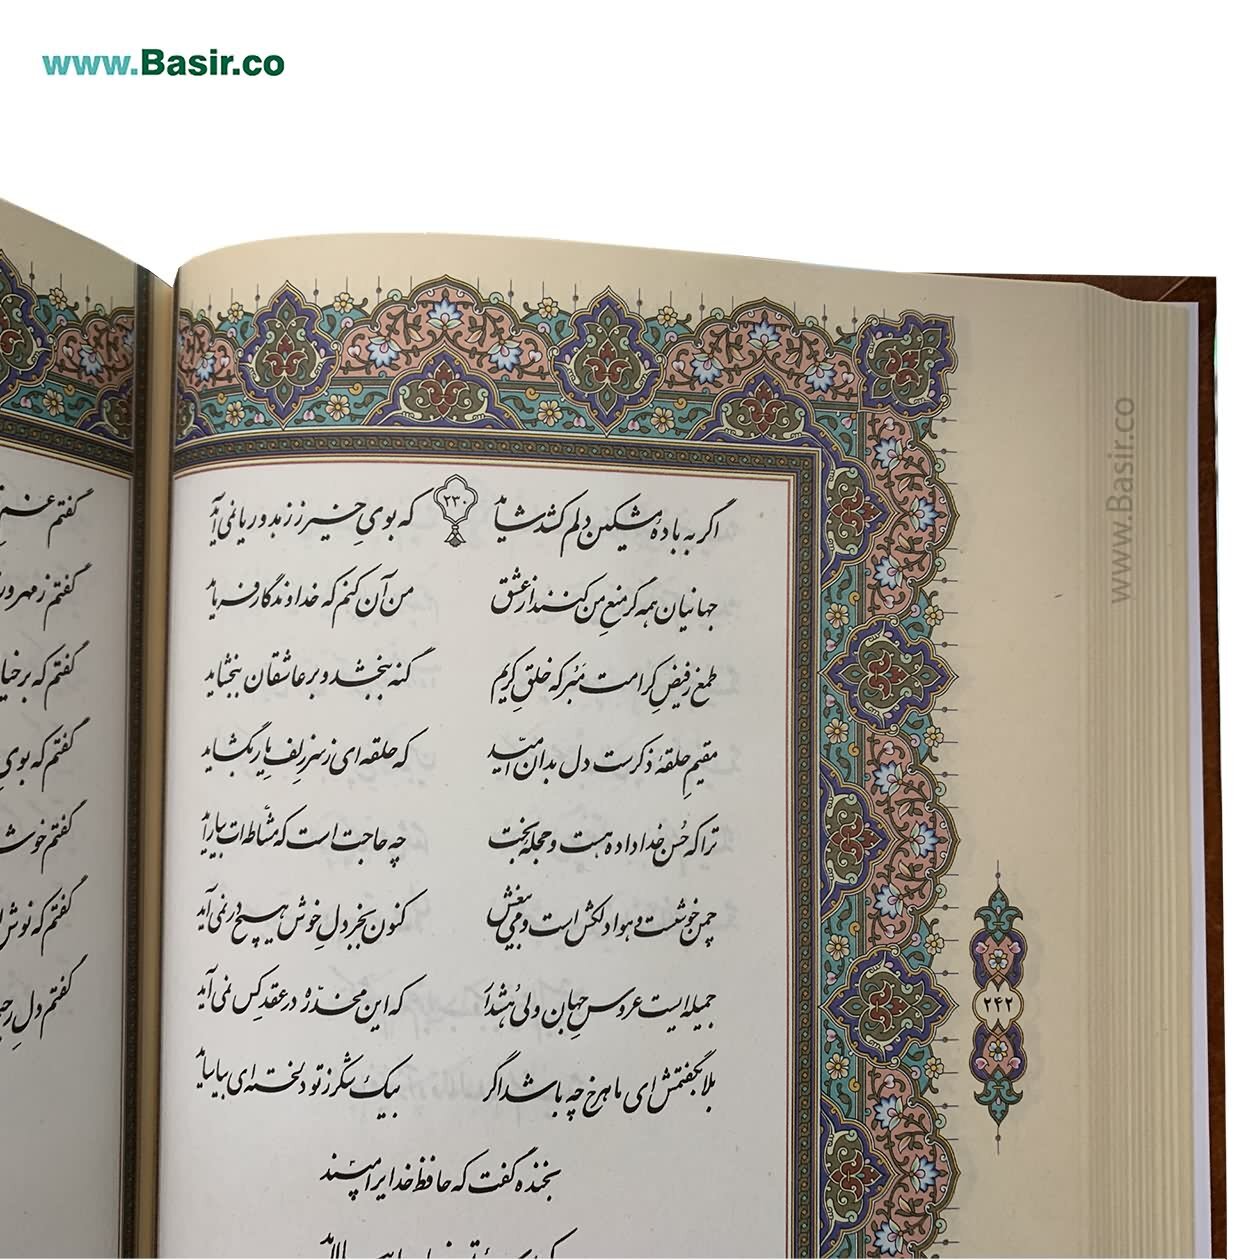 www.Basir.co
۲۳۰
اگر به بادهٔ مشکین دلم کشد شاید که بوی خیر ز زهد و ریا نمی‌آید
جهانیان همه گر منعِ من کنند از عشق من آن کنم که خداوندگار فرماید
طمع ز فیضِ کرامت مَبُر که خلقِ کریم گنه ببخشد و بر عاشقان ببخشاید
مقیمِ حلقهٔ ذکرست دل بدان امید که حلقه‌ای ز سرِ زلفِ یار بگشاید
ترا که حُسنِ خُداداده هست و حجلهٔ بخت چه حاجت است که مشّاطه‌ات بیاراید
چمن خوشست و هوا دلکش است و می بیغش کنون بجز دلِ خوش هیچ در نمی‌آید
جمیله‌ایست عروسِ جهان ولی هُشدار که این مخدّره در عقدِ کس نمی‌آید
بلابه گفتمش ای ماهرخ چه باشد اگر بیک شکر ز تو دلخسته‌ای بیاساید
بخنده گفت که حافظ خدایرا مپسند
گفتم
گفتم ز مهرورز
گفتم که بر خیا
گفتم که بوی
گفتم خوشا
گفتم که نوش
گفتم دلِ رحی
۲۴۲
www.Basir.co